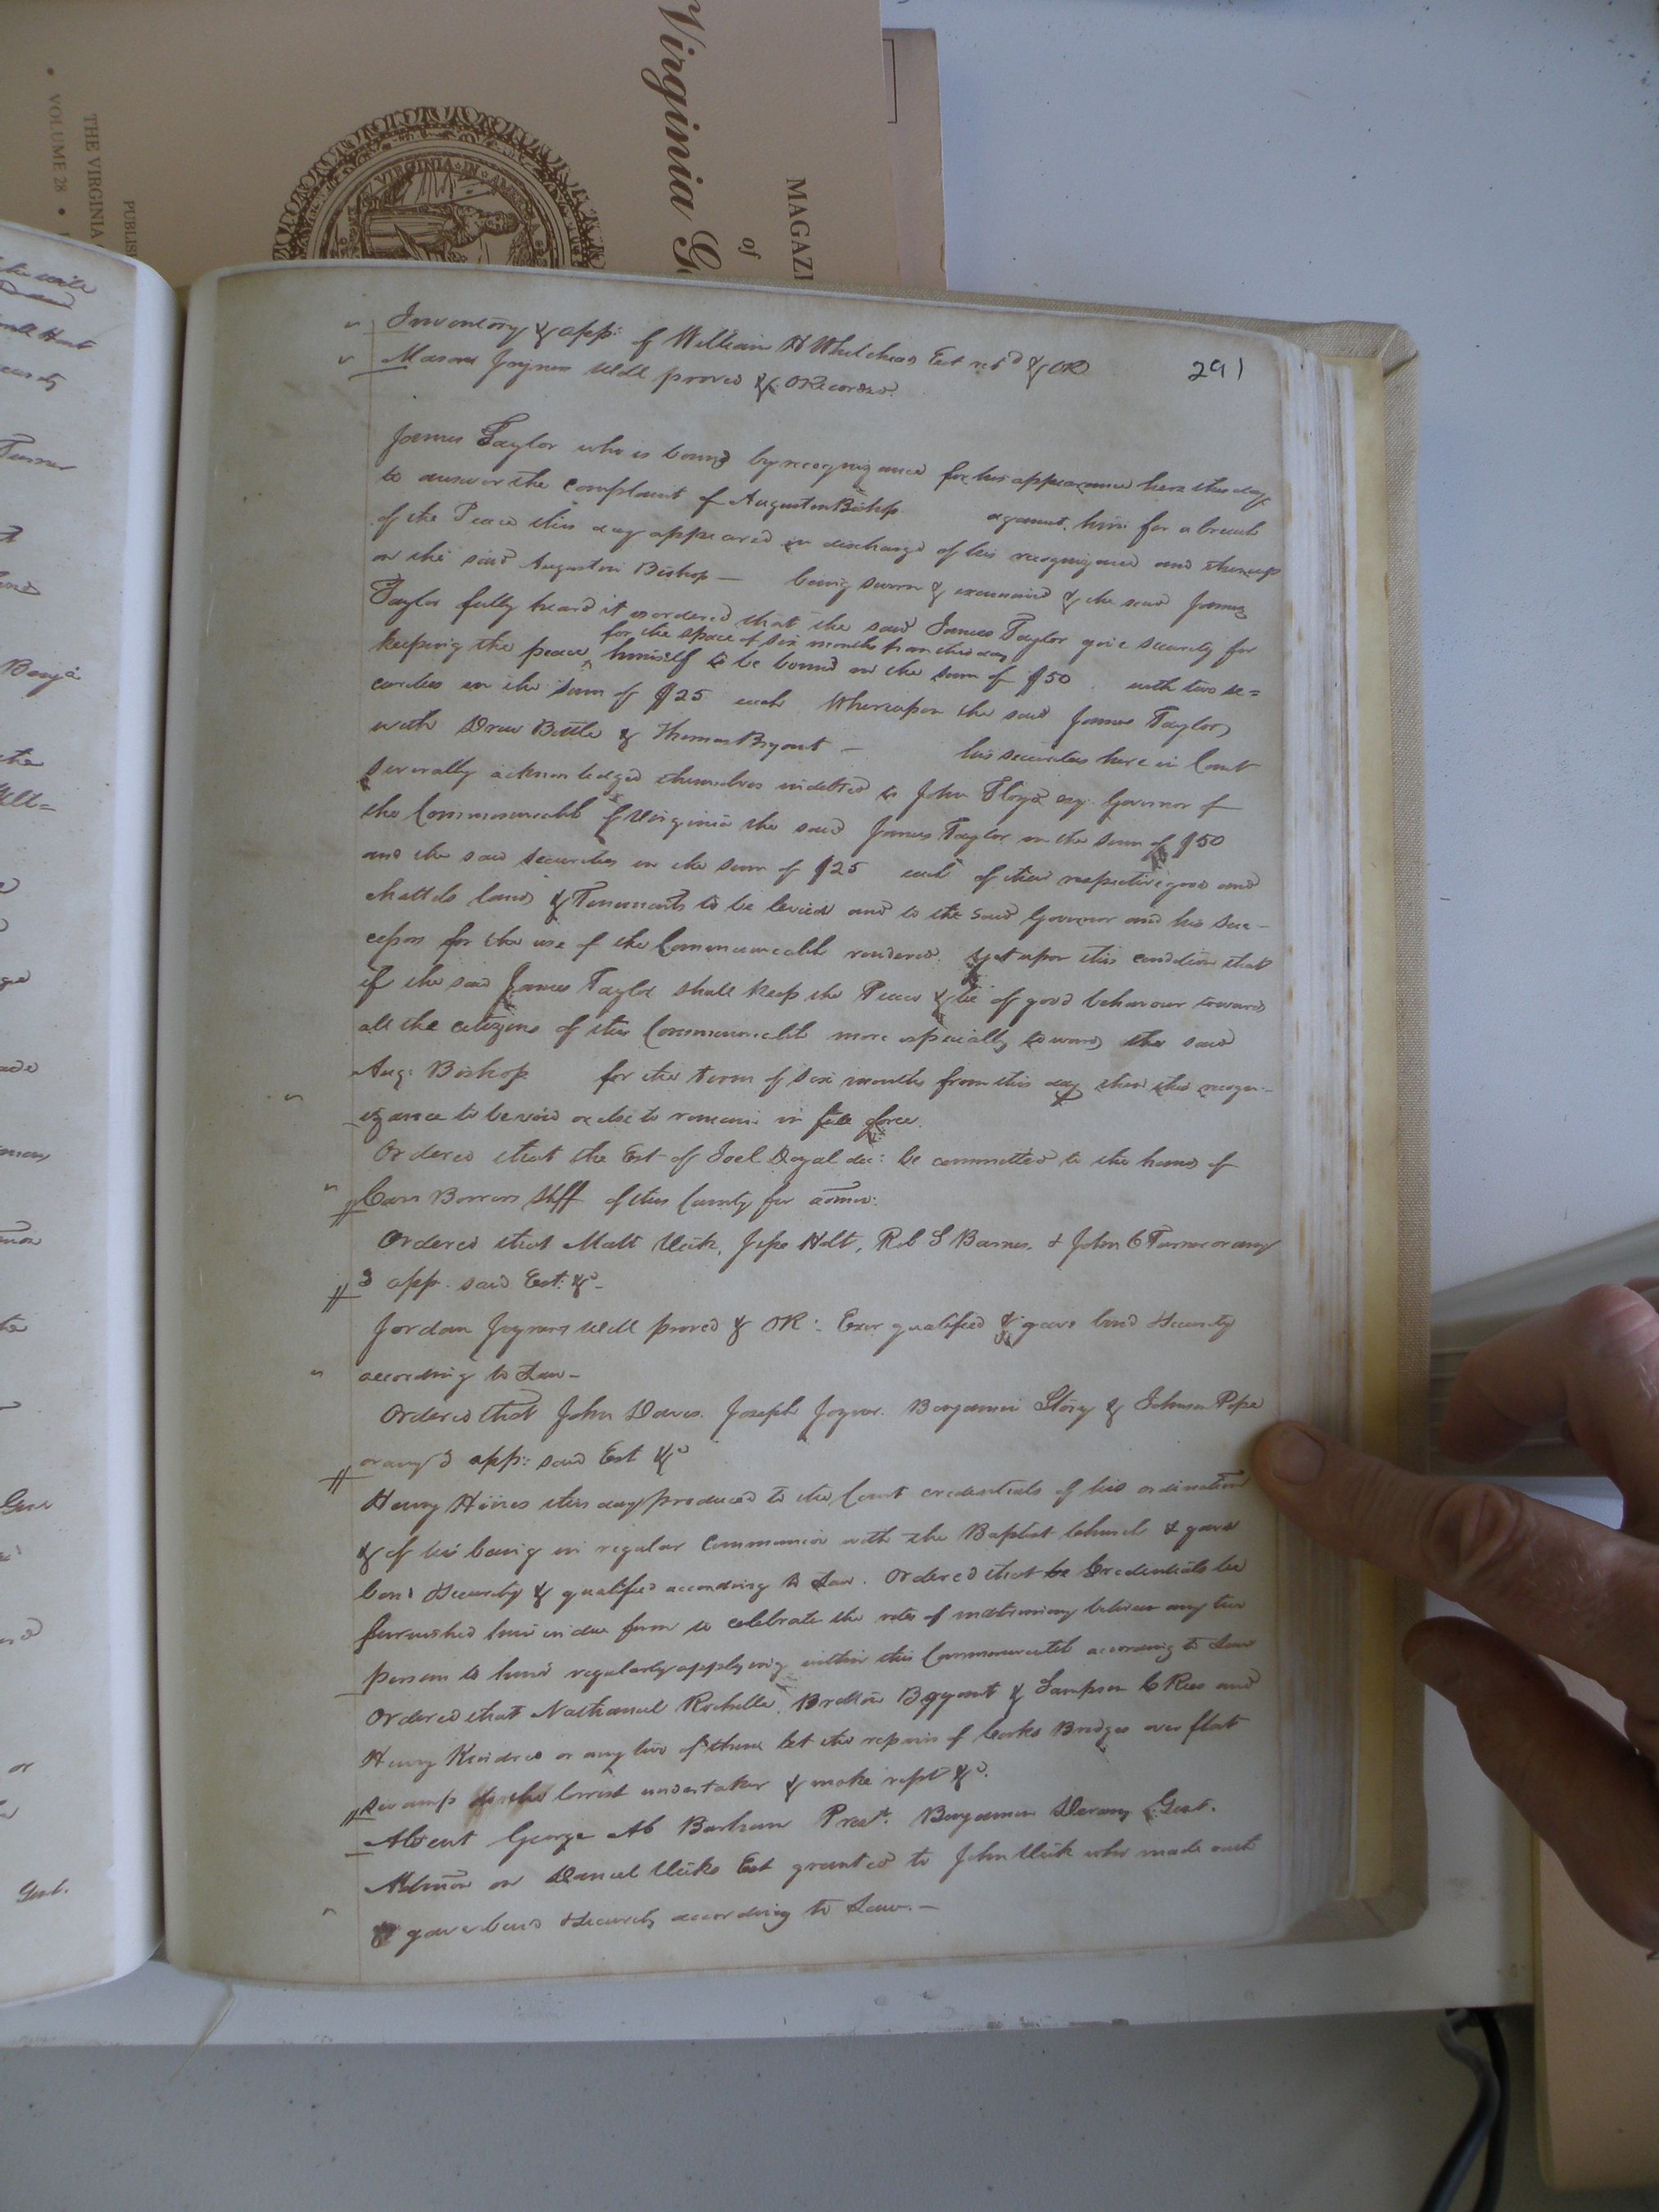 Virginia G
of
MAGAZI
THE VIRGINIA
VOLUME 28 •
PUBLIS
VIRGINIA IN
291
Inventory & app: of William H Whitehead Est ret.d & OR
Mason Joyners Will proved & ORecorded.
James Taylor who is bound by recognizance for his appearance here this day
to answer the complaint of Augustin Bishop against him for a breach
of the Peace this day appeared in discharge of his recognizance and thereup
on the said Augustin Bishop — being sworn & examined & the said James
Taylor fully heard it is ordered that the said James Taylor give security for
for the space of six months from this day
keeping the peace ^ himself to be bound in the sum of $50 with two se=
curities in the sum of $25 each Whereupon the said James Taylor
with Drew Bittle & Thomas Bryant — his securities here in Court
severally acknowledged themselves indebted to John Floyd esq. Governor of
the Commonwealth of Virginia the said James Taylor in the sum of $50
and the said securities in the sum of $25 each of their respective goods and
chattels lands & Tenements to be levied and to the said Governor and his suc-
cessors for the use of the Commonwealth rendered. yet upon this condition that
if the said James Taylor shall keep the Peace & be of good behaviour towards
all the citizens of this Commonwealth more especially towards the said
Aug: Bishop for the term of six months from this day then this recogn-
izance to be void or else to remain in full force.
Ordered that the Est of Joel Doyal dec: be committed to the hands of
Carr Bowers Shff of this County for admon:
Ordered that Matt Vick, Jesse Holt, Rob S Barnes, & John C Turner or any
3 app. said Est: &c-
Jordan Joyners Will proved & OR: Exor qualified & gave bond & Security
according to Law-
Ordered that John Davis. Joseph Joyner. Benjamin Story & Johnson Pope
or any 3 app: said Est &c
Henry Hines this day produced to the Court credentials of his ordination
& of his being in regular Communion with the Baptist Church & gave
bond & security & qualified according to Law. Ordered that be Credentials be
furnished him in due form to celebrate the rites of matrimony between any two
persons to him regularly applying within this Commonwealth according to Law
Ordered that Nathaniel Rochelle, Bryant & Sampson C Reese and
Henry Kindred or any two of them let the repairs of Corks Bridges over flat
swamp to the lowest undertaker & make rept &c.
Absent George Barham Prest. Benjamin Devany Gent.
Admon on Daniel Vicks Est granted to John Vick who made oath
& gave bond & security according to Law.—